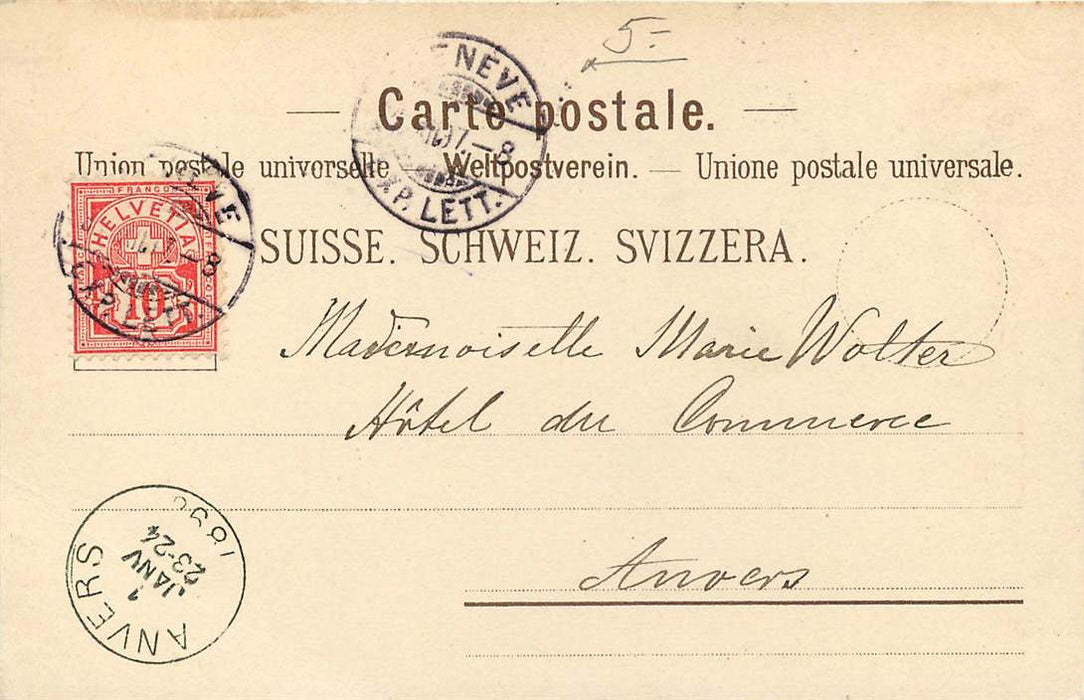 5-
— Carte postale. —
Union postale universelle — Weltpostverein. — Unione postale universale.
SUISSE. SCHWEIZ. SVIZZERA.
FRANCO
HELVETIA
10
EXP. LETT.
Mademoiselle Marie Wolter
Hôtel du Commerce
Anvers
ANVERS
1 JANV
23-24